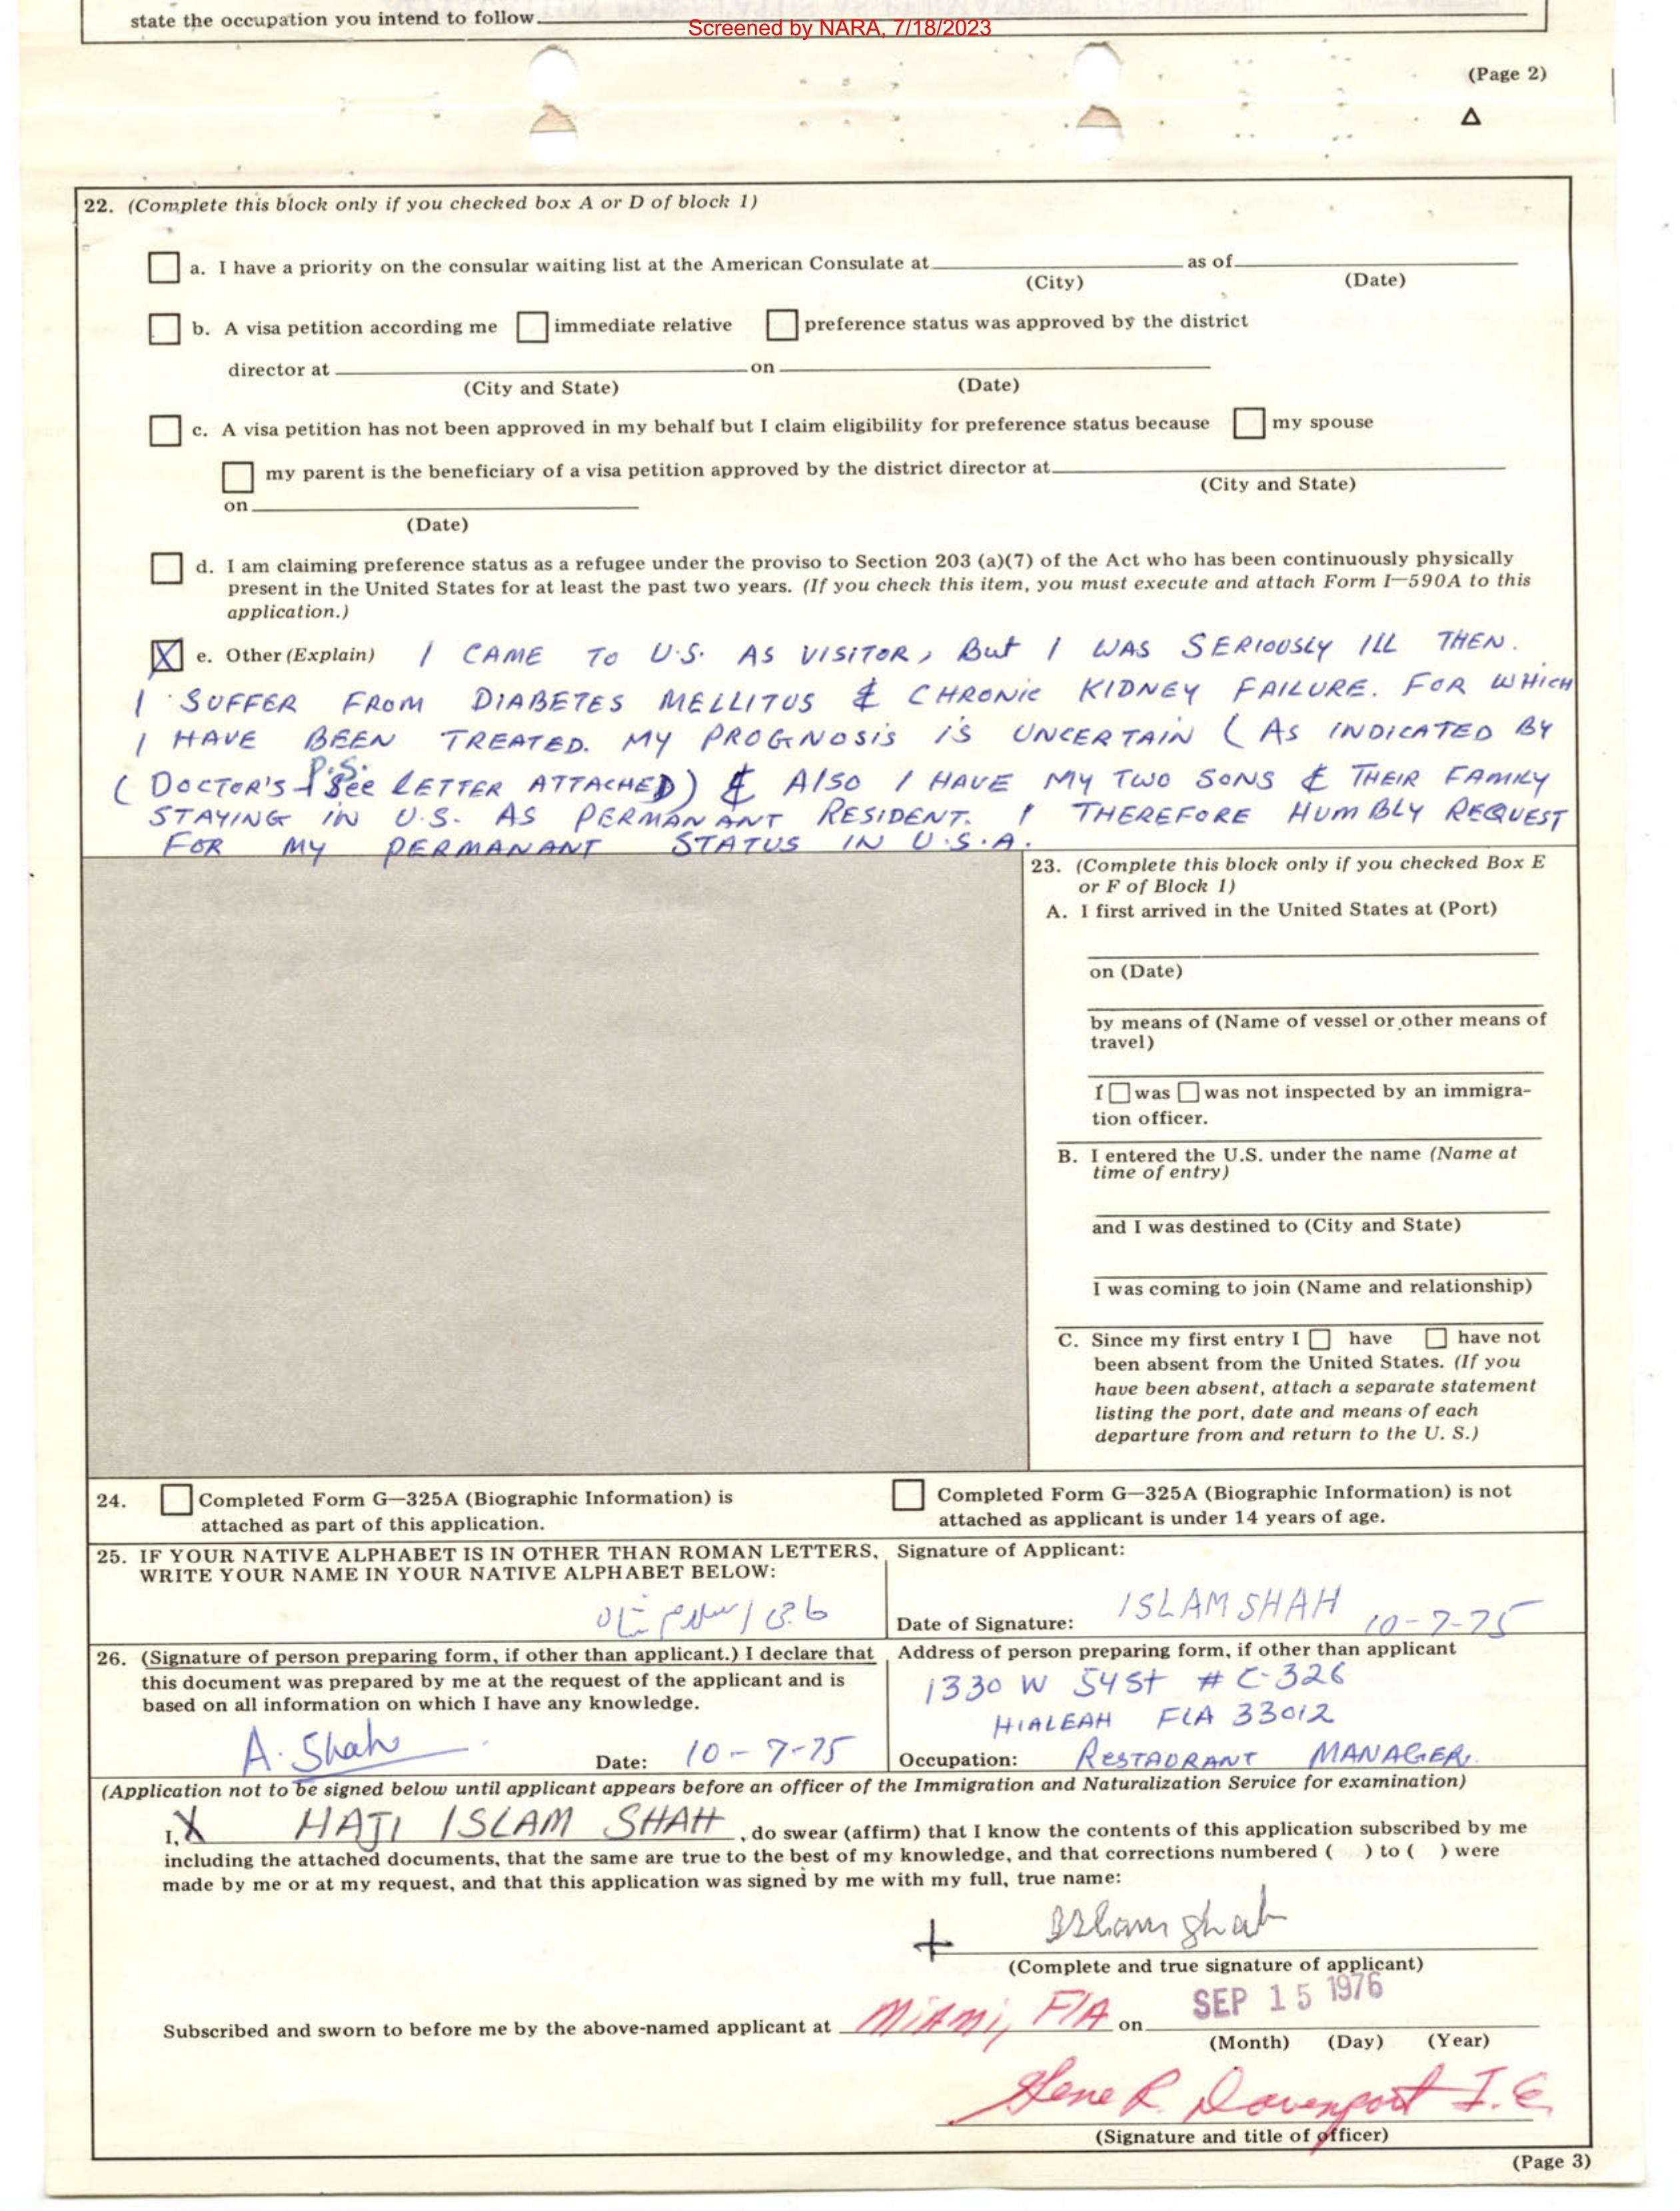 state the occupation you intend to follow
Screened by NARA, 7/18/2023
(Page 2)
Δ
22. (Complete this block only if you checked box A or D of block 1)
a. I have a priority on the consular waiting list at the American Consulate at as of
(City) (Date)
b. A visa petition according me immediate relative preference status was approved by the district
director at on
(City and State) (Date)
c. A visa petition has not been approved in my behalf but I claim eligibility for preference status because my spouse
my parent is the beneficiary of a visa petition approved by the district director at
(City and State)
on
(Date)
d. I am claiming preference status as a refugee under the proviso to Section 203 (a)(7) of the Act who has been continuously physically
present in the United States for at least the past two years. (If you check this item, you must execute and attach Form I—590A to this
application.)
X e. Other (Explain) I CAME TO U.S. AS VISITOR, BUT I WAS SERIOUSLY ILL THEN.
I SUFFER FROM DIABETES MELLITUS & CHRONIC KIDNEY FAILURE. FOR WHICH
I HAVE BEEN TREATED. MY PROGNOSIS IS UNCERTAIN (AS INDICATED BY
(DOCTOR'S P.S. See LETTER ATTACHED) & ALSO I HAVE MY TWO SONS & THEIR FAMILY
STAYING IN U.S. AS PERMANANT RESIDENT. I THEREFORE HUMBLY REQUEST
FOR MY PERMANANT STATUS IN U.S.A.
23. (Complete this block only if you checked Box E
or F of Block 1)
A. I first arrived in the United States at (Port)
on (Date)
by means of (Name of vessel or other means of
travel)
I was was not inspected by an immigra-
tion officer.
B. I entered the U.S. under the name (Name at
time of entry)
and I was destined to (City and State)
I was coming to join (Name and relationship)
C. Since my first entry I have have not
been absent from the United States. (If you
have been absent, attach a separate statement
listing the port, date and means of each
departure from and return to the U. S.)
24. Completed Form G—325A (Biographic Information) is
attached as part of this application.
Completed Form G—325A (Biographic Information) is not
attached as applicant is under 14 years of age.
25. IF YOUR NATIVE ALPHABET IS IN OTHER THAN ROMAN LETTERS,
WRITE YOUR NAME IN YOUR NATIVE ALPHABET BELOW:
حاجی اسلام شاہ
Signature of Applicant:
ISLAM SHAH
Date of Signature: 10-7-75
26. (Signature of person preparing form, if other than applicant.) I declare that
this document was prepared by me at the request of the applicant and is
based on all information on which I have any knowledge.
A. Shah Date: 10-7-75
Address of person preparing form, if other than applicant
1330 W 54 St # C-326
HIALEAH FLA 33012
Occupation: RESTAURANT MANAGER.
(Application not to be signed below until applicant appears before an officer of the Immigration and Naturalization Service for examination)
I, X HAJI ISLAM SHAH, do swear (affirm) that I know the contents of this application subscribed by me
including the attached documents, that the same are true to the best of my knowledge, and that corrections numbered ( ) to ( ) were
made by me or at my request, and that this application was signed by me with my full, true name:
+ Islam Shah
(Complete and true signature of applicant)
Subscribed and sworn to before me by the above-named applicant at Miami, FlA on SEP 15 1976
(Month) (Day) (Year)
Gene R. Davenport I.E.
(Signature and title of officer)
(Page 3)